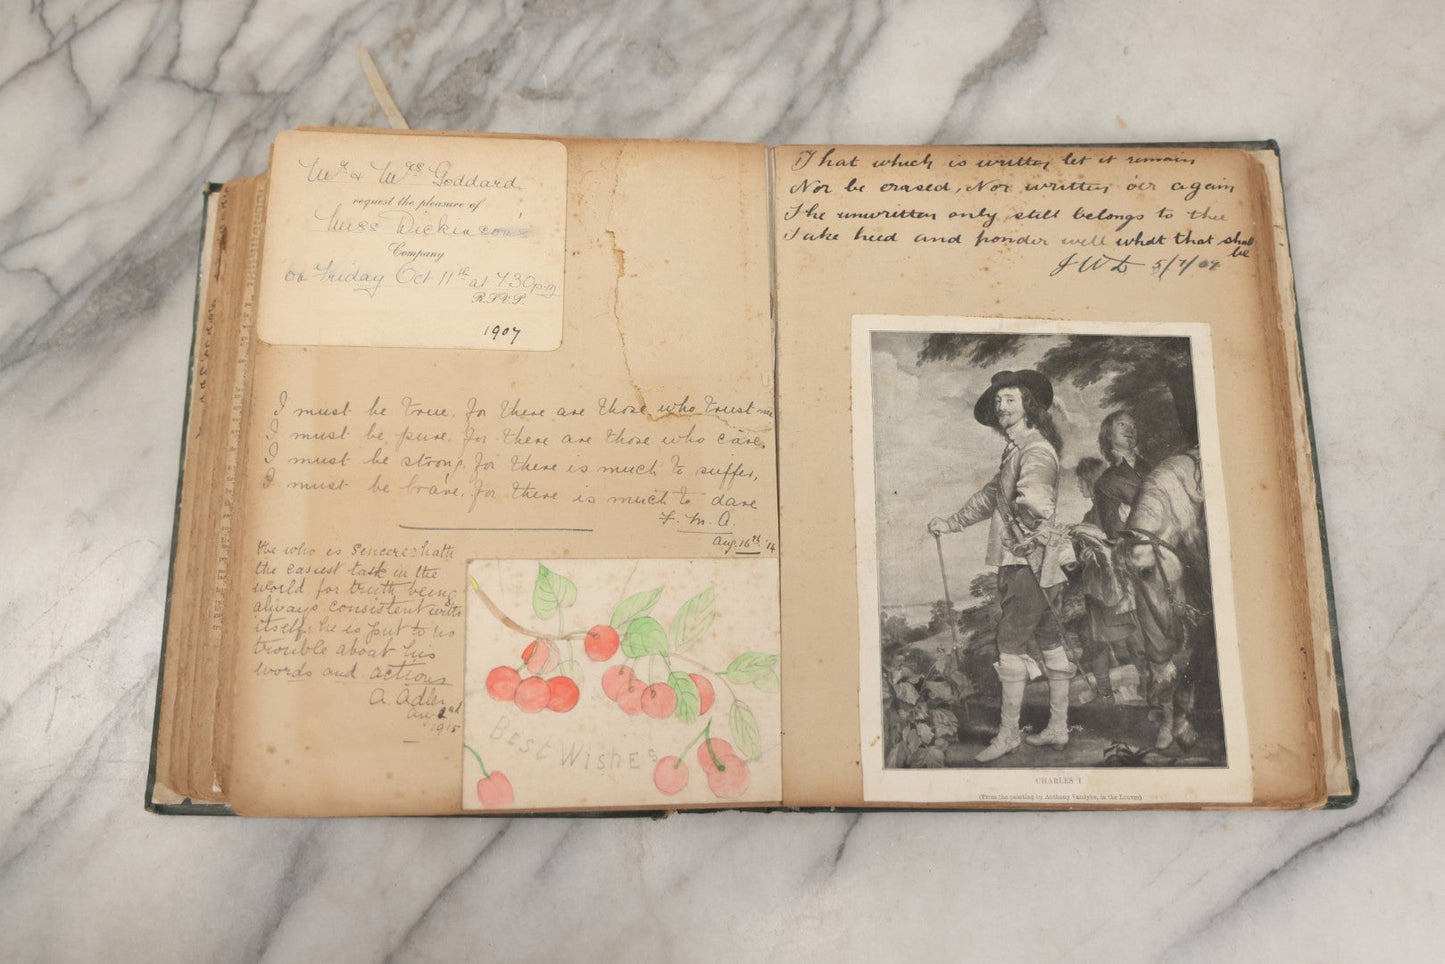 Mr & Mrs Goddard
request the pleasure of
Miss Dickinson's
Company
on Friday Oct 11th at 7.30 p.m
R.S.V.P.
1907
I must be true, for there are those who trust me
I must be pure, for there are those who care,
I must be strong, for there is much to suffer,
I must be brave, for there is much to dare
F. M. A.
Aug. 16th '14
He who is sincere hath
the easiest task in the
world for truth being
always consistent with
itself he is put to no
trouble about his
words and actions
A. Adler
Aug 2nd
1915
Best Wishes
That which is written, let it remain
Nor be erased, Nor written o'er again
The unwritten only still belongs to thee
Take heed and ponder well what that shall
be
J W D 5/7/09
CHARLES I
(From the painting by Anthony Vandyke, in the Louvre)